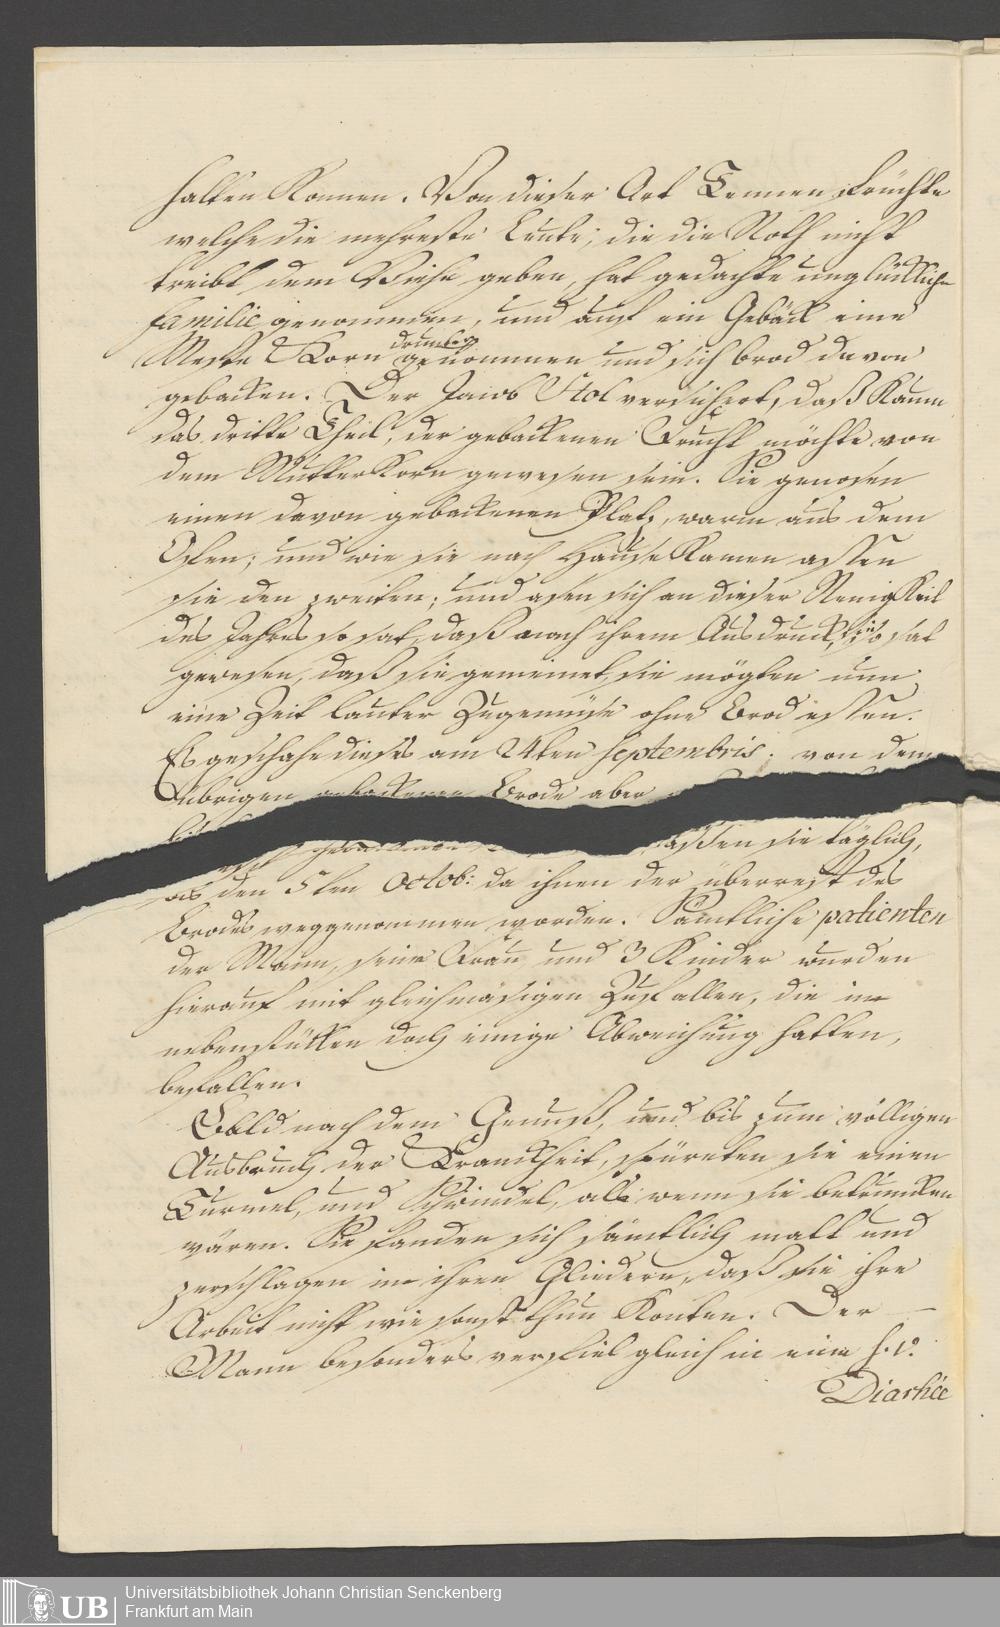 halten Konnen. Von dieser Art Tennen Früchte
welche die mehreste Leute, die die Noth nicht
treibt dem Viehe geben, hat gedachte unglückliche
familie genommen, und auf ein Gebäck eine
Meste Korn drunter genommen und sich brod davon
gebacken. Der Jacob Stol versichert, daß Kaum
das dritte Theil, der gebackenen Frucht möchte von
dem Mutter Korn gewesen sein. Sie genosen
einen davon gebackenen Platz, warm aus dem
Ofen; und wie sie nach Hause Kamen assen
sie den zweiten; und asen sich an dieser Neuigkeit
des Jahres so satt, daß nach ihrem Ausdruck, sie so sat
gewesen, daß sie gemeinet sie mögten nun
eine Zeit lauter Zugemüse ohne Brod essen.
Es geschahe dieses am 24ten septembris. von dem
Übrigen gebackenen Brode aber
assen sie täglich,
bis den 5ten Octob: da ihnen der überrest des
Brodes weggenommen worden. Sämtliche patienten
der Mann, seine Frau und 3 Kinder wurden
hierauf mit gleichmäsigen Zufallen, die in
nebenstücken doch einige Abweichung hatten,
befallen.
Bald nach dem Genuß, und bis zum völligen
Ausbruch der Kranckheit, spüreten sie einen
Turmel, und Schwindel, als wenn sie betruncken
wären. Sie fanden sich sämtlich matt und
zerschlagen in ihren Gliedern, daß sie ihre
Arbeit nicht wie sonst thun Konten. Der
Mann besonders verfiel gleich in eine s. v.
Diarhée
UB
Universitätsbibliothek Johann Christian Senckenberg
Frankfurt am Main